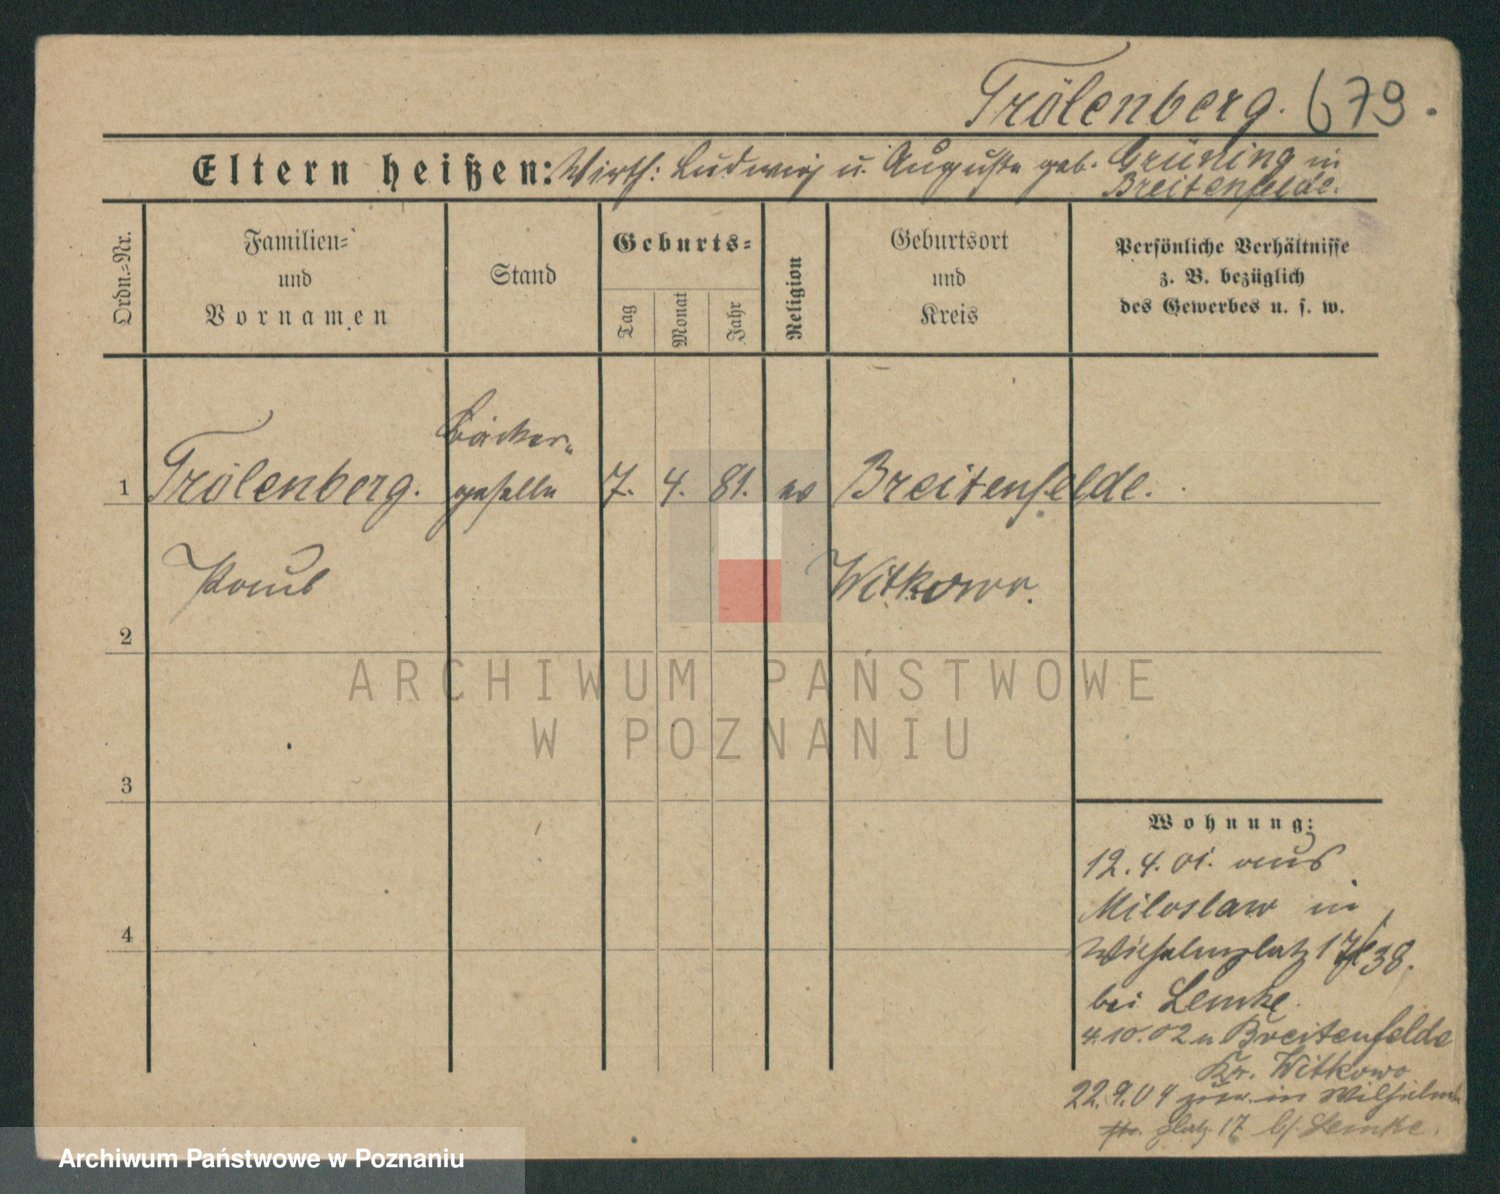 Trölenberg. 679.
Eltern heißen: Wirth: Ludwig u. Auguste geb. Grüsling in
Breitenfelde.
Ordn.-Nr.
Familien-
und
Vornamen
Stand
Geburts-
Tag
Monat
Jahr
Religion
Geburtsort
und
Kreis
Persönliche Verhältnisse
z. B. bezüglich
des Gewerbes u. s. w.
Bäcker-
1 Trölenberg. geselle 7. 4. 81. ev Breitenfelde.
Paul Witkowo.
2
3
4
Wohnung:
12.4.01. aus
Miloslaw in
Wilhelmplatz 17/38.
bei Lemke.
4.10.02 n Breitenfelde
Kr. Witkowo
22.9.04 zur. in Wilhelm
platz 17 b/ Lemke.
ARCHIWUM PAŃSTWOWE
W POZNANIU
Archiwum Państwowe w Poznaniu